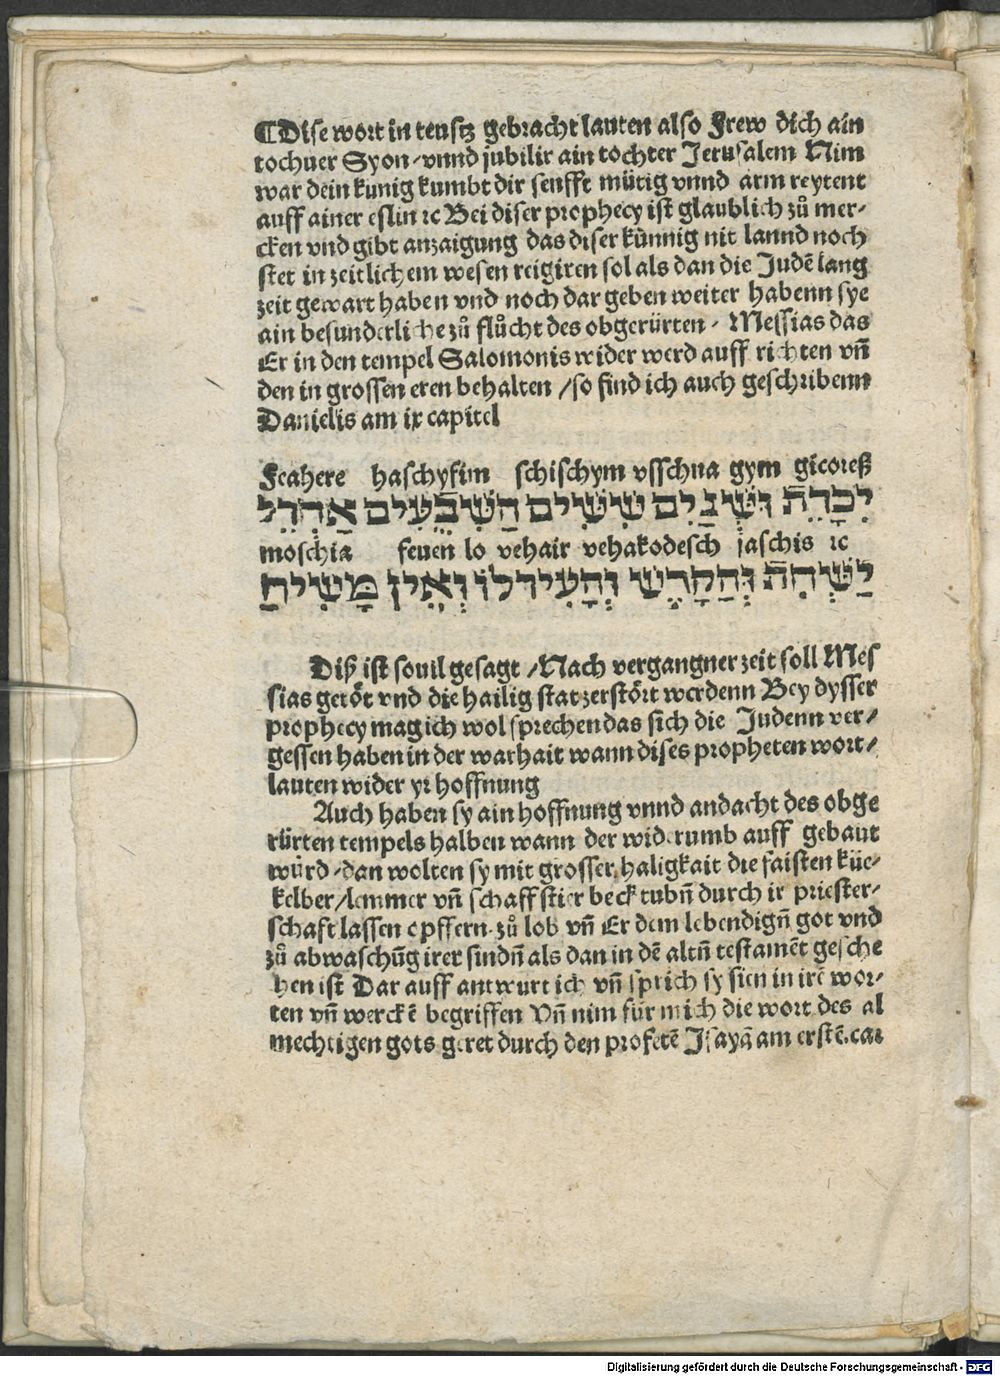 ¶Dise wort in teustz gebracht lauten also Frew dich ain
tochuer Syon / vnnd jubilir ain tochter Jerusalem Nim
war dein kunig kumbt dir senfft mütig vnnd arm reytent
auff ainer eslin ꝛc Bei diser prophecy ist glaublich zů mer⸗
cken vnd gibt anzaigung das diser künnig nit lannd noch
stet in zeitlichem wesen reigiren sol als dan die Judē lang
zeit gewart haben vnd noch dar geben weiter habenn sye
ain besunderliche zů flůcht des obgerürten / Messias das
Er in den tempel Salomonis wider werd auff richten vn̄
den in grossen eren behalten / so find ich auch geschribenn
Danielis am ix capitel
Feahere haschyfim schischym vsschna gym gicoreß
יִכָּרֵה וּשְׁנַיִם שִׁשִּׁים הַשִׁבֻעִים אַחְרֵי
moschia feuen lo vehair vehakodesch jaschis ꝛc
יַשְׁחִה וְהַקָרֶשׁ וְהָעִיר לוֹ וְאֵין מָּשִׁיחַ
Diß ist souil gesagt / Nach vergangner zeit soll Mes
sias getöt vnd die hailig stat zerstört werdenn Bey dysser
prophecy mag ich wol sprechen das sich die Judenn ver⸗
gessen haben in der warhait wann dises propheten wort⸗
lauten wider yr hoffnung
Auch haben sy ain hoffnung vnnd andacht des obge
rürten tempels halben wann der widerumb auff gebaut
würd / dan wolten sy mit grosser haligkait die faisten küe⸗
kelber / lemmer vn̄ schaff stier beck tubn̄ durch ir priester⸗
schaft lassen opffern zů lob vn̄ Er dem lebendign̄ got vnd
zů abwaschūg irer sindn̄ als dan in dē altn̄ testamēt gesche
hen ist Dar auff antwurt ich vn̄ sprich sy sien in irē wor⸗
ten vn̄ werckē begriffen Vn̄ nim für mich die wort des al
mechtigen gots geret durch den profetē Jsayā am erstē. car
Digitalisierung gefördert durch die Deutsche Forschungsgemeinschaft - DFG